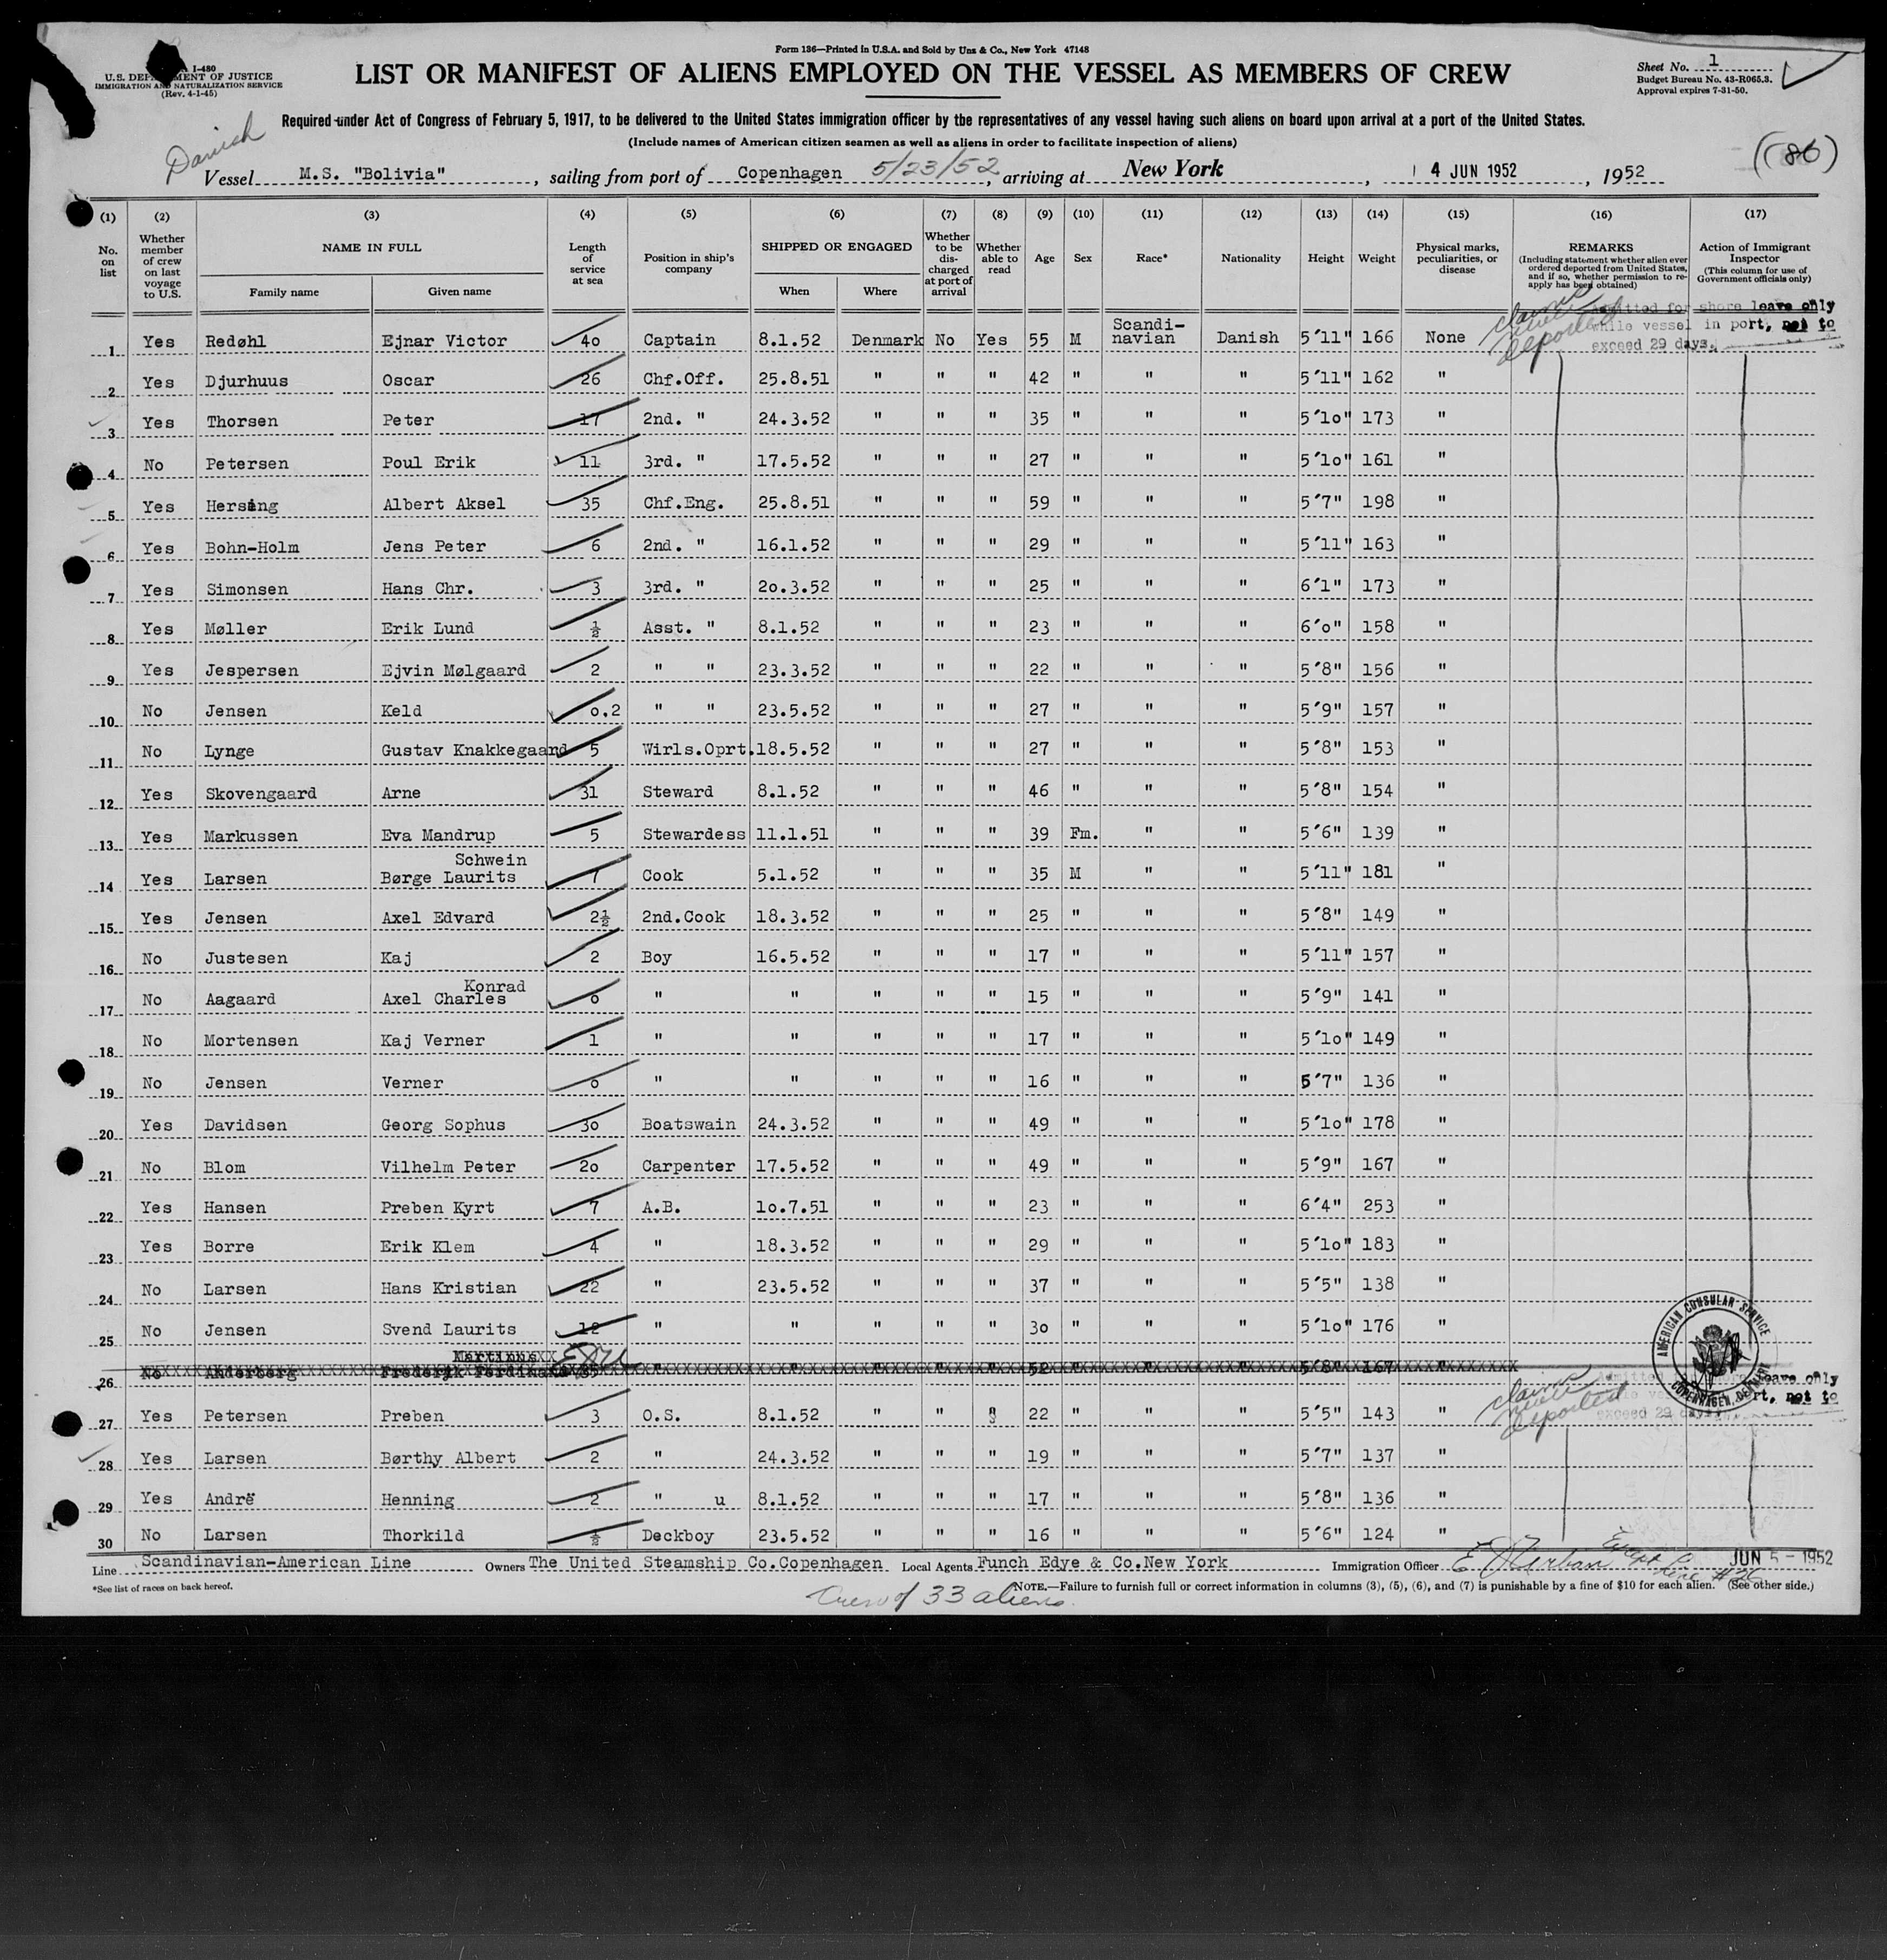 Form 136—Printed in U.S.A. and Sold by Unz & Co., New York 47148
I-480
U.S. DEPARTMENT OF JUSTICE
IMMIGRATION AND NATURALIZATION SERVICE
(Rev. 4-1-45)
LIST OR MANIFEST OF ALIENS EMPLOYED ON THE VESSEL AS MEMBERS OF CREW
Sheet No. 1
Budget Bureau No. 43-R065.3.
Approval expires 7-31-50.
Required under Act of Congress of February 5, 1917, to be delivered to the United States immigration officer by the representatives of any vessel having such aliens on board upon arrival at a port of the United States.
(Include names of American citizen seamen as well as aliens in order to facilitate inspection of aliens)
Danish
(86)
Vessel M.S. "Bolivia", sailing from port of Copenhagen 5/23/52, arriving at New York, 4 JUN 1952, 1952
(1) (2) (3) (4) (5) (6) (7) (8) (9) (10) (11) (12) (13) (14) (15) (16) (17)
No. on list
Whether member of crew on last voyage to U.S.
NAME IN FULL
Family name
Given name
Length of service at sea
Position in ship's company
SHIPPED OR ENGAGED
When
Where
Whether to be discharged at port of arrival
Whether able to read
Age
Sex
Race*
Nationality
Height
Weight
Physical marks, peculiarities, or disease
REMARKS
(Including statement whether alien ever ordered deported from United States, and if so, whether permission to reapply has been obtained)
Action of Immigrant Inspector
(This column for use of Government officials only)
claims never deported
Admitted for shore leave only
while vessel in port, not to
exceed 29 days.
1 Yes Redøhl Ejnar Victor 40 Captain 8.1.52 Denmark No Yes 55 M Scandinavian Danish 5'11" 166 None
2 Yes Djurhuus Oscar 26 Chf.Off. 25.8.51 " " " 42 " " " 5'11" 162 "
3 Yes Thorsen Peter 17 2nd. " 24.3.52 " " " 35 " " " 5'10" 173 "
4 No Petersen Poul Erik 11 3rd. " 17.5.52 " " " 27 " " " 5'10" 161 "
5 Yes Hersing Albert Aksel 35 Chf.Eng. 25.8.51 " " " 59 " " " 5'7" 198 "
6 Yes Bohn-Holm Jens Peter 6 2nd. " 16.1.52 " " " 29 " " " 5'11" 163 "
7 Yes Simonsen Hans Chr. 3 3rd. " 20.3.52 " " " 25 " " " 6'1" 173 "
8 Yes Møller Erik Lund ½ Asst. " 8.1.52 " " " 23 " " " 6'0" 158 "
9 Yes Jespersen Ejvin Mølgaard 2 " " 23.3.52 " " " 22 " " " 5'8" 156 "
10 No Jensen Keld 0,2 " " 23.5.52 " " " 27 " " " 5'9" 157 "
11 No Lynge Gustav Knakkegaard 5 Wirls.Oprt. 18.5.52 " " " 27 " " " 5'8" 153 "
12 Yes Skovengaard Arne 31 Steward 8.1.52 " " " 46 " " " 5'8" 154 "
13 Yes Markussen Eva Mandrup 5 Stewardess 11.1.51 " " " 39 Fm. " " 5'6" 139 "
Schwein
14 Yes Larsen Børge Laurits 7 Cook 5.1.52 " " " 35 M " " 5'11" 181 "
15 Yes Jensen Axel Edvard 2½ 2nd.Cook 18.3.52 " " " 25 " " " 5'8" 149 "
16 No Justesen Kaj 2 Boy 16.5.52 " " " 17 " " " 5'11" 157 "
Konrad
17 No Aagaard Axel Charles 0 " " " " " 15 " " " 5'9" 141 "
18 No Mortensen Kaj Verner 1 " " " " " 17 " " " 5'10" 149 "
19 No Jensen Verner 0 " " " " " 16 " " " 5'7" 136 "
20 Yes Davidsen Georg Sophus 30 Boatswain 24.3.52 " " " 49 " " " 5'10" 178 "
21 No Blom Vilhelm Peter 20 Carpenter 17.5.52 " " " 49 " " " 5'9" 167 "
22 Yes Hansen Preben Kyrt 7 A.B. 10.7.51 " " " 23 " " " 6'4" 253 "
23 Yes Borre Erik Klem 4 " 18.3.52 " " " 29 " " " 5'10" 183 "
24 No Larsen Hans Kristian 22 " 23.5.52 " " " 37 " " " 5'5" 138 "
25 No Jensen Svend Laurits 12 " " " " " 30 " " " 5'10" 176 "
26 No Anderberg Frederik Ferdinand 35 52 5'8" 167
AMERICAN CONSULAR SERVICE
COPENHAGEN, DENMARK
claims never deported
Admitted for shore leave only
while vessel in port, not to
exceed 29 days
27 Yes Petersen Preben 3 O.S. 8.1.52 " " " 22 " " " 5'5" 143 "
28 Yes Larsen Børthy Albert 2 " 24.3.52 " " " 19 " " " 5'7" 137 "
29 Yes Andrë Henning 2 " u 8.1.52 " " " 17 " " " 5'8" 136 "
30 No Larsen Thorkild ½ Deckboy 23.5.52 " " " 16 " " " 5'6" 124 "
Line Scandinavian-American Line Owners The United Steamship Co.Copenhagen Local Agents Funch Edye & Co.New York Immigration Officer
Except Line #26
JUN 5 - 1952
*See list of races on back hereof.
Crew of 33 aliens.
NOTE.—Failure to furnish full or correct information in columns (3), (5), (6), and (7) is punishable by a fine of $10 for each alien. (See other side.)